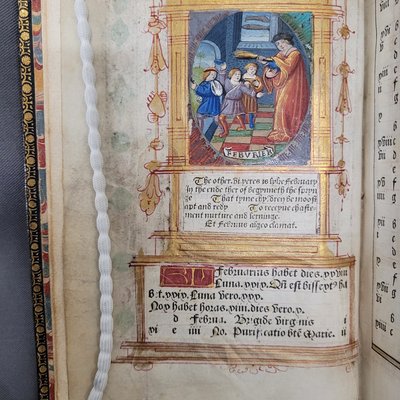 FEBVRIER
The other vi yeres is lyke February
In the ende ther of begynneth the spryn
ge That tyme chyldren be moost
apt and redy To receyue chasti-
ment nurture and lerninge.
Et februus algeo clamat.
Februarius habet dies. xxviii
Luna. xxix. Qñ est bissext9 ha
b t. xxix. Luna vero. xxx.
Nox habet horas. xiiii. dies vero. x.
d Febru. Brigide virginis i
xi e iiii No. Purificatio bte Marie. ii